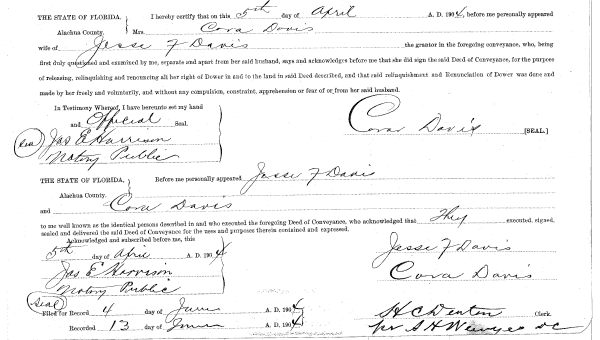 THE STATE OF FLORIDA. I hereby certify that on this 5th day of April A. D. 1904, before me personally appeared
Alachua County. Mrs. Cora Davis
wife of Jesse F Davis the grantor in the foregoing conveyance, who, being
first duly questioned and examined by me, separate and apart from her said husband, says and acknowledges before me that she did sign the said Deed of Conveyance, for the purpose
of releasing, relinquishing and renouncing all her right of Dower in and to the land in said Deed described, and that said relinquishment and Renunciation of Dower was done and
made by her freely and voluntarily, and without any compulsion, constraint, apprehension or fear of or from her said husband.
In Testimony Whereof, I have hereunto set my hand
and Official Seal.
Seal Jas E Harrison
Notary Public
Cora Davis [SEAL.]
THE STATE OF FLORIDA. Before me personally appeared Jesse F Davis
Alachua County.
and Cora Davis
to me well known as the identical persons described in and who executed the foregoing Deed of Conveyance, who acknowledged that They executed, signed,
sealed and delivered the said Deed of Conveyance for the uses and purposes therein contained and expressed.
Acknowledged and subscribed before me, this
5th day of April A. D. 1904
Jas E Harrison
Notary Public
Seal
Jesse F Davis
Cora Davis
Filed for Record 4 day of June A. D. 1904
Recorded 13 day of June A. D. 1904
S H C Denton Clerk.
per S H D C